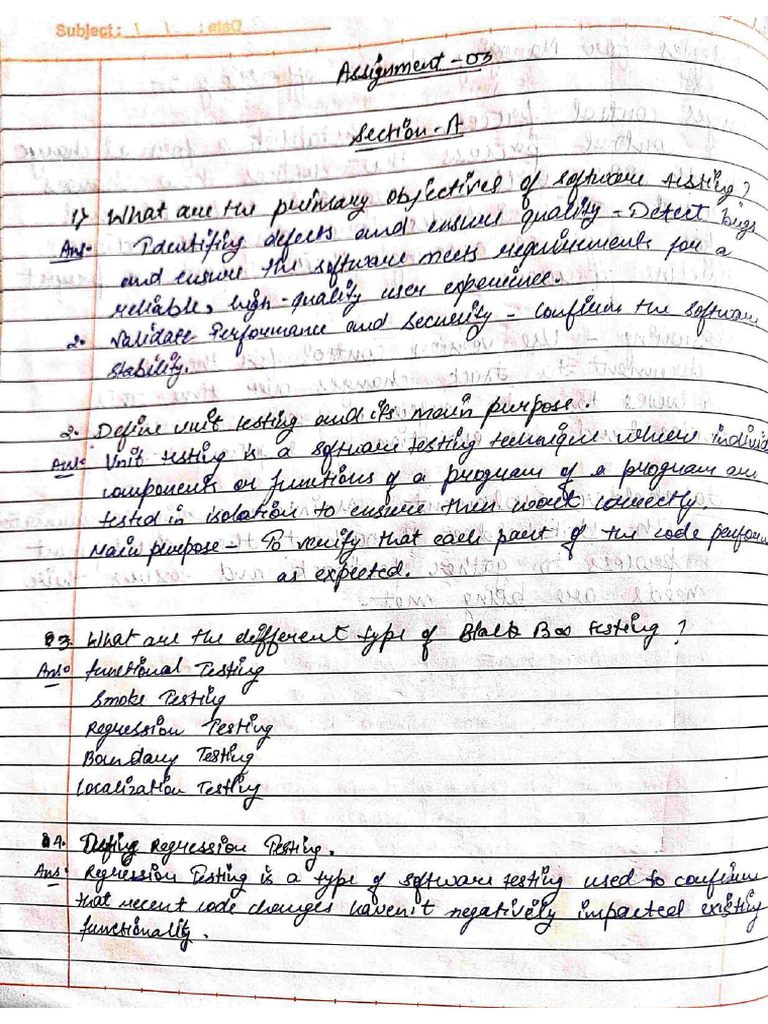 Subject: / / Date:
Assignment - 03
Section - A
1) What are the primary objectives of software testing?
Ans:- Identifing defects and ensure quality - Detect bugs
and ensure the software meets requirements for a
reliable, high-quality user experience.
2. Validate Performance and Security - Confirm the software
stability.
2. Define unit testing and its main purpose.
Ans:- Unit testing is a software testing technique where individ
components or functions of a program of a program are
tested in isolation to ensure they work correctly.
Main purpose - To verify that each part of the code perform
as expected.
Q3. What are the different type of Black Box testing?
Ans:- functional Testing
Smoke Testing
Regression Testing
Boundary Testing
Localization Testing
Q4. Regression Testing.
Ans:- Regression Testing is a type of software testing used to confirm
that recent code changes haven't negatively impacted existing
functionality.